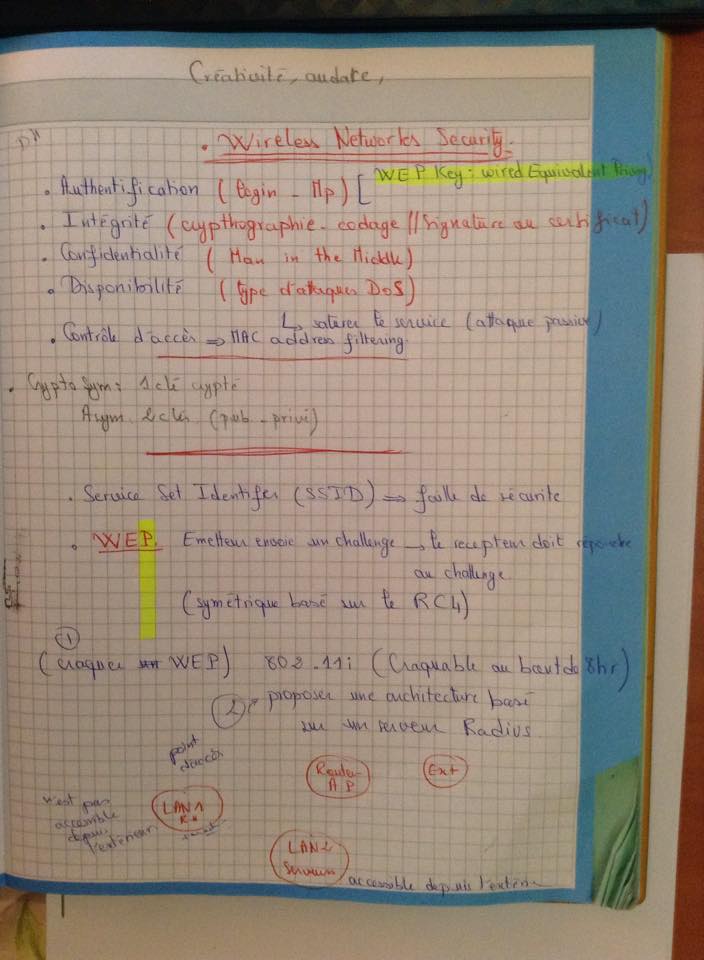 Créativité, audace,
• Wireless Networks Security.
• Authentification (Login - Mp) [WEP Key: wired Equivalent Privacy]
• Intégrité (crypthographie - codage // Signature au certificat)
• Confidentialité (Man in the Middle)
• Disponibilité (type d'attaques DoS)
↳ saturer le service (attaque passive)
• Contrôle d'accès ⇒ MAC address filtering.
• Crypto Sym: 1 clé crypté
Asym 2 clés (pub - privé)
• Service Set Identifer (SSID) ⇒ faille de sécurité
• WEP. Emetteur envoie un challenge → le recepteur doit répondre
au challenge
(symétrique basé sur le RC4)
①
(Craquer WEP) 802.11i (Craquable au bout de 8hr)
② proposer une architecture basé
sur un serveur Radius
point
d'accès
Router
AP
Ext
n'est pas
accessible
depuis
l'extérieur
LAN1
LAN2
Serveurs
accessible depuis l'extér